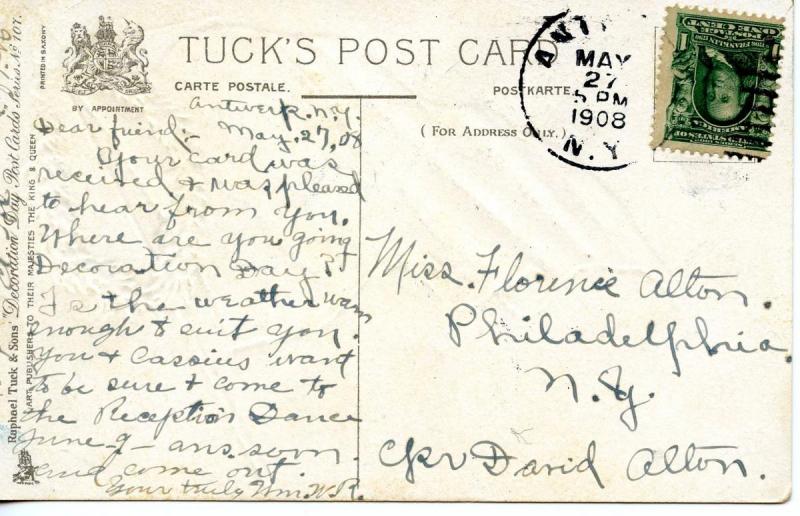 TUCK'S POST CARD
CARTE POSTALE.
POSTKARTE.
BY APPOINTMENT
(FOR ADDRESS ONLY.)
PRINTED IN SAXONY
Raphael Tuck & Sons' "Decoration Day" Post Cards Series No 107.
ART PUBLISHERS TO THEIR MAJESTIES THE KING & QUEEN
MAY
27
5 PM
1908
N.Y.
Antwerp, N.Y.
May, 27, 08
Dear friend:-
Your card was
received & was pleased
to hear from you.
Where are you going
Decoration Day?
Is the weather warm
enough to suit you.
You & Cassius want
to be sure & come to
the Reception Dance
June-9- ans. soon.
and come out.
Your truly Wm. W. R.
Miss. Florence Alton.
Philadelphia
N.Y.
c/o David Alton.